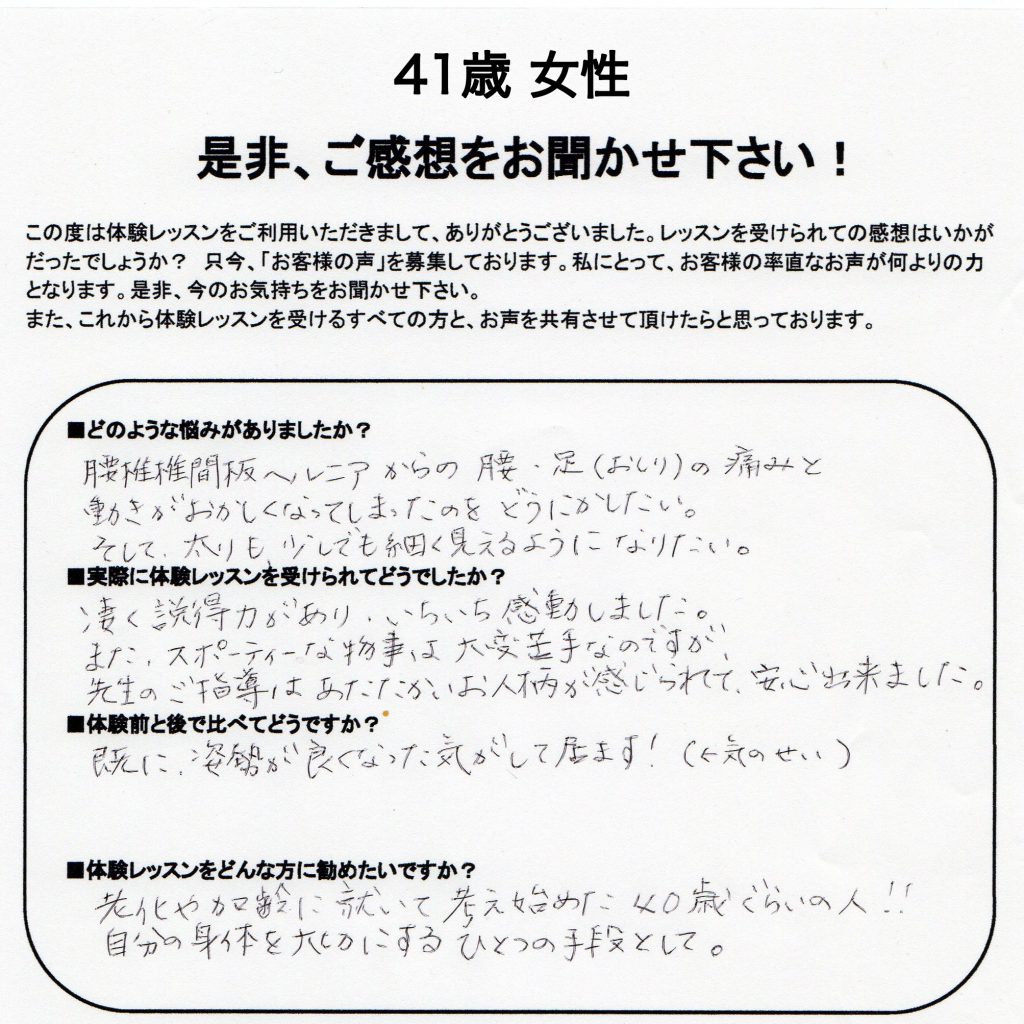 41歳 女性
是非、ご感想をお聞かせ下さい！
この度は体験レッスンをご利用いただきまして、ありがとうございました。レッスンを受けられての感想はいかが
だったでしょうか？　只今、「お客様の声」を募集しております。私にとって、お客様の率直なお声が何よりの力
となります。是非、今のお気持ちをお聞かせ下さい。
また、これから体験レッスンを受けるすべての方と、お声を共有させて頂けたらと思っております。
■どのような悩みがありましたか？
腰椎椎間板ヘルニアからの 腰・足(おしり)の痛みと
動きがおかしくなってしまったのをどうにかしたい。
そして、太りも、少しでも細く見えるようになりたい。
■実際に体験レッスンを受けられてどうでしたか？
凄く説得力があり、いちいち感動しました。
また、スポーティーな物事は大変苦手なのですが、
先生のご指導はあたたかいお人柄が感じられて、安心出来ました。
■体験前と後で比べてどうですか？
既に、姿勢が良くなった気がして居ます！(←気のせい)
■体験レッスンをどんな方に勧めたいですか？
老化や加齢に就いて考え始めた40歳ぐらいの人!!
自分の身体を大切にするひとつの手段として。